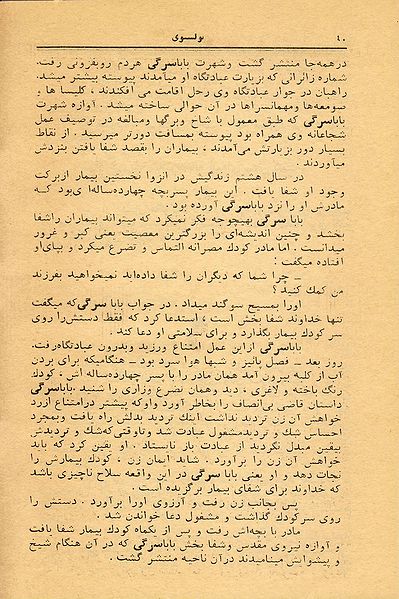 ۴۰
تولستوی
در همه‌جا منتشر گشت و شهرت باباسرگی هردم روبفزونی رفت.
شماره زائرانی که بزیارت عبادتگاه او میآمدند پیوسته بیشتر میشد.
راهبان در جوار عبادتگاه وی رحل اقامت می‌افکندند ، کلیسا ها و
صومعه‌ها ومهمانسراها در آن حوالی ساخته میشد . آوازه شهرت
باباسرگی که طبق معمول با شاخ وبرگها ومبالغه در توصیف عمل
شجاعانه وی همراه بود پیوسته بمسافت دورتر میرسید . از نقاط
بسیار دور بزیارتش می‌آمدند ، بیماران را بقصد شفا یافتن بنزدش
میآوردند .
در سال هشتم زندگیش در انزوا نخستین بیمار ازبرکت
وجود او شفا یافت . این بیمار پسربچه چهارده‌ساله‌ا ی‌بود که
مادرش او را نزد باباسرگی آورده بود .
بابا سرگی بهیچوجه فکر نمیکرد که میتواند بیماران راشفا
بخشد و چنین اندیشه‌ای را بزرگترین معصیت یعنی کبر و غرور
میدانست . اما مادر کودك مصرانه التماس و تضرع میکرد و بپای‌او
افتاده میگفت :
ـ چرا شما که دیگران را شفا داده‌اید نمیخواهید بفرزند
من کمك کنید ؟
اورا بمسیح سوگند میداد . در جواب بابا سرگی‌که میگفت
تنها خداوند شفا بخش است ، استدعا کرد که فقط دستش‌را روی
سر کودك بیمار بگذارد و برای سلامتی او دعا کند .
باباسرگی ازاین عمل امتناع ورزید وبدرون عبادتگاه‌رفت.
روز بعد ـ فصل پائیز و شبها هوا سرد بود ـ هنگامیکه برای بردن
آب از کلبه بیرون آمد همان مادر را با پسر چهارده‌ساله اش ، کودك
رنگ باخته و لاغری ، دید وهمان تضرع وزاری را شنید .باباسرگی
داستان قاضی بی‌انصاف را بخاطر آورد واوکه پیشتر درامتناع ازرد
خواهش آن زن تردید نداشت اینك تردید بدلش راه یافت وبمجرد
احساس شك و تردیدمشغول عبادت شد وتاوقتی‌که‌شك و تردیدش
بیقین مبدل نگردید از عبادت باز نایستاد . او یقین کرد که باید
خواهش آن زن را برآورد . شاید ایمان زن ، کودك بیمارش را
نجات دهد و او یعنی بابا سرگی در این واقعه سلاح ناچیزی باشد
که خداوند برای شفای بیمار برگزیده است .
پس بجانب زن رفت و آرزوی اورا برآورد . دستش را
روی سرکودك گذاشت و مشغول دعا خواندن شد .
مادر با بچه‌اش رفت و پس از یکماه کودك بیمار شفا یافت
و آوازه نیروی مقدس وشفا بخش باباسرگی که در آن هنگام شیخ
و پیشوایش مینامیدند درآن ناحیه منتشر گشت .